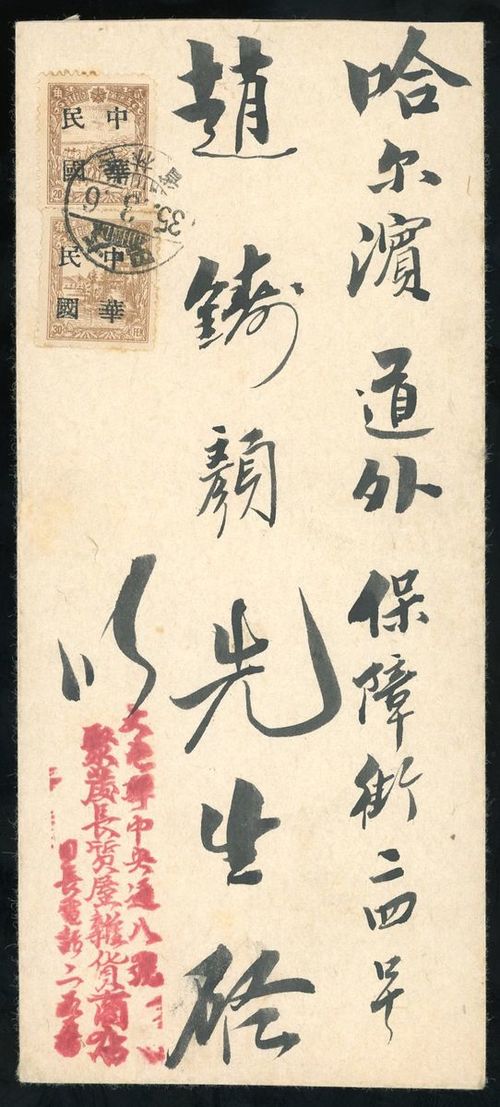 哈尔濱道外保障街二四号
趙鑄顏先生啓
中央通八號
長質屋雜貨商店
長電話二五
中華
民國
20
35.3.6
中華
民國
30 FEN